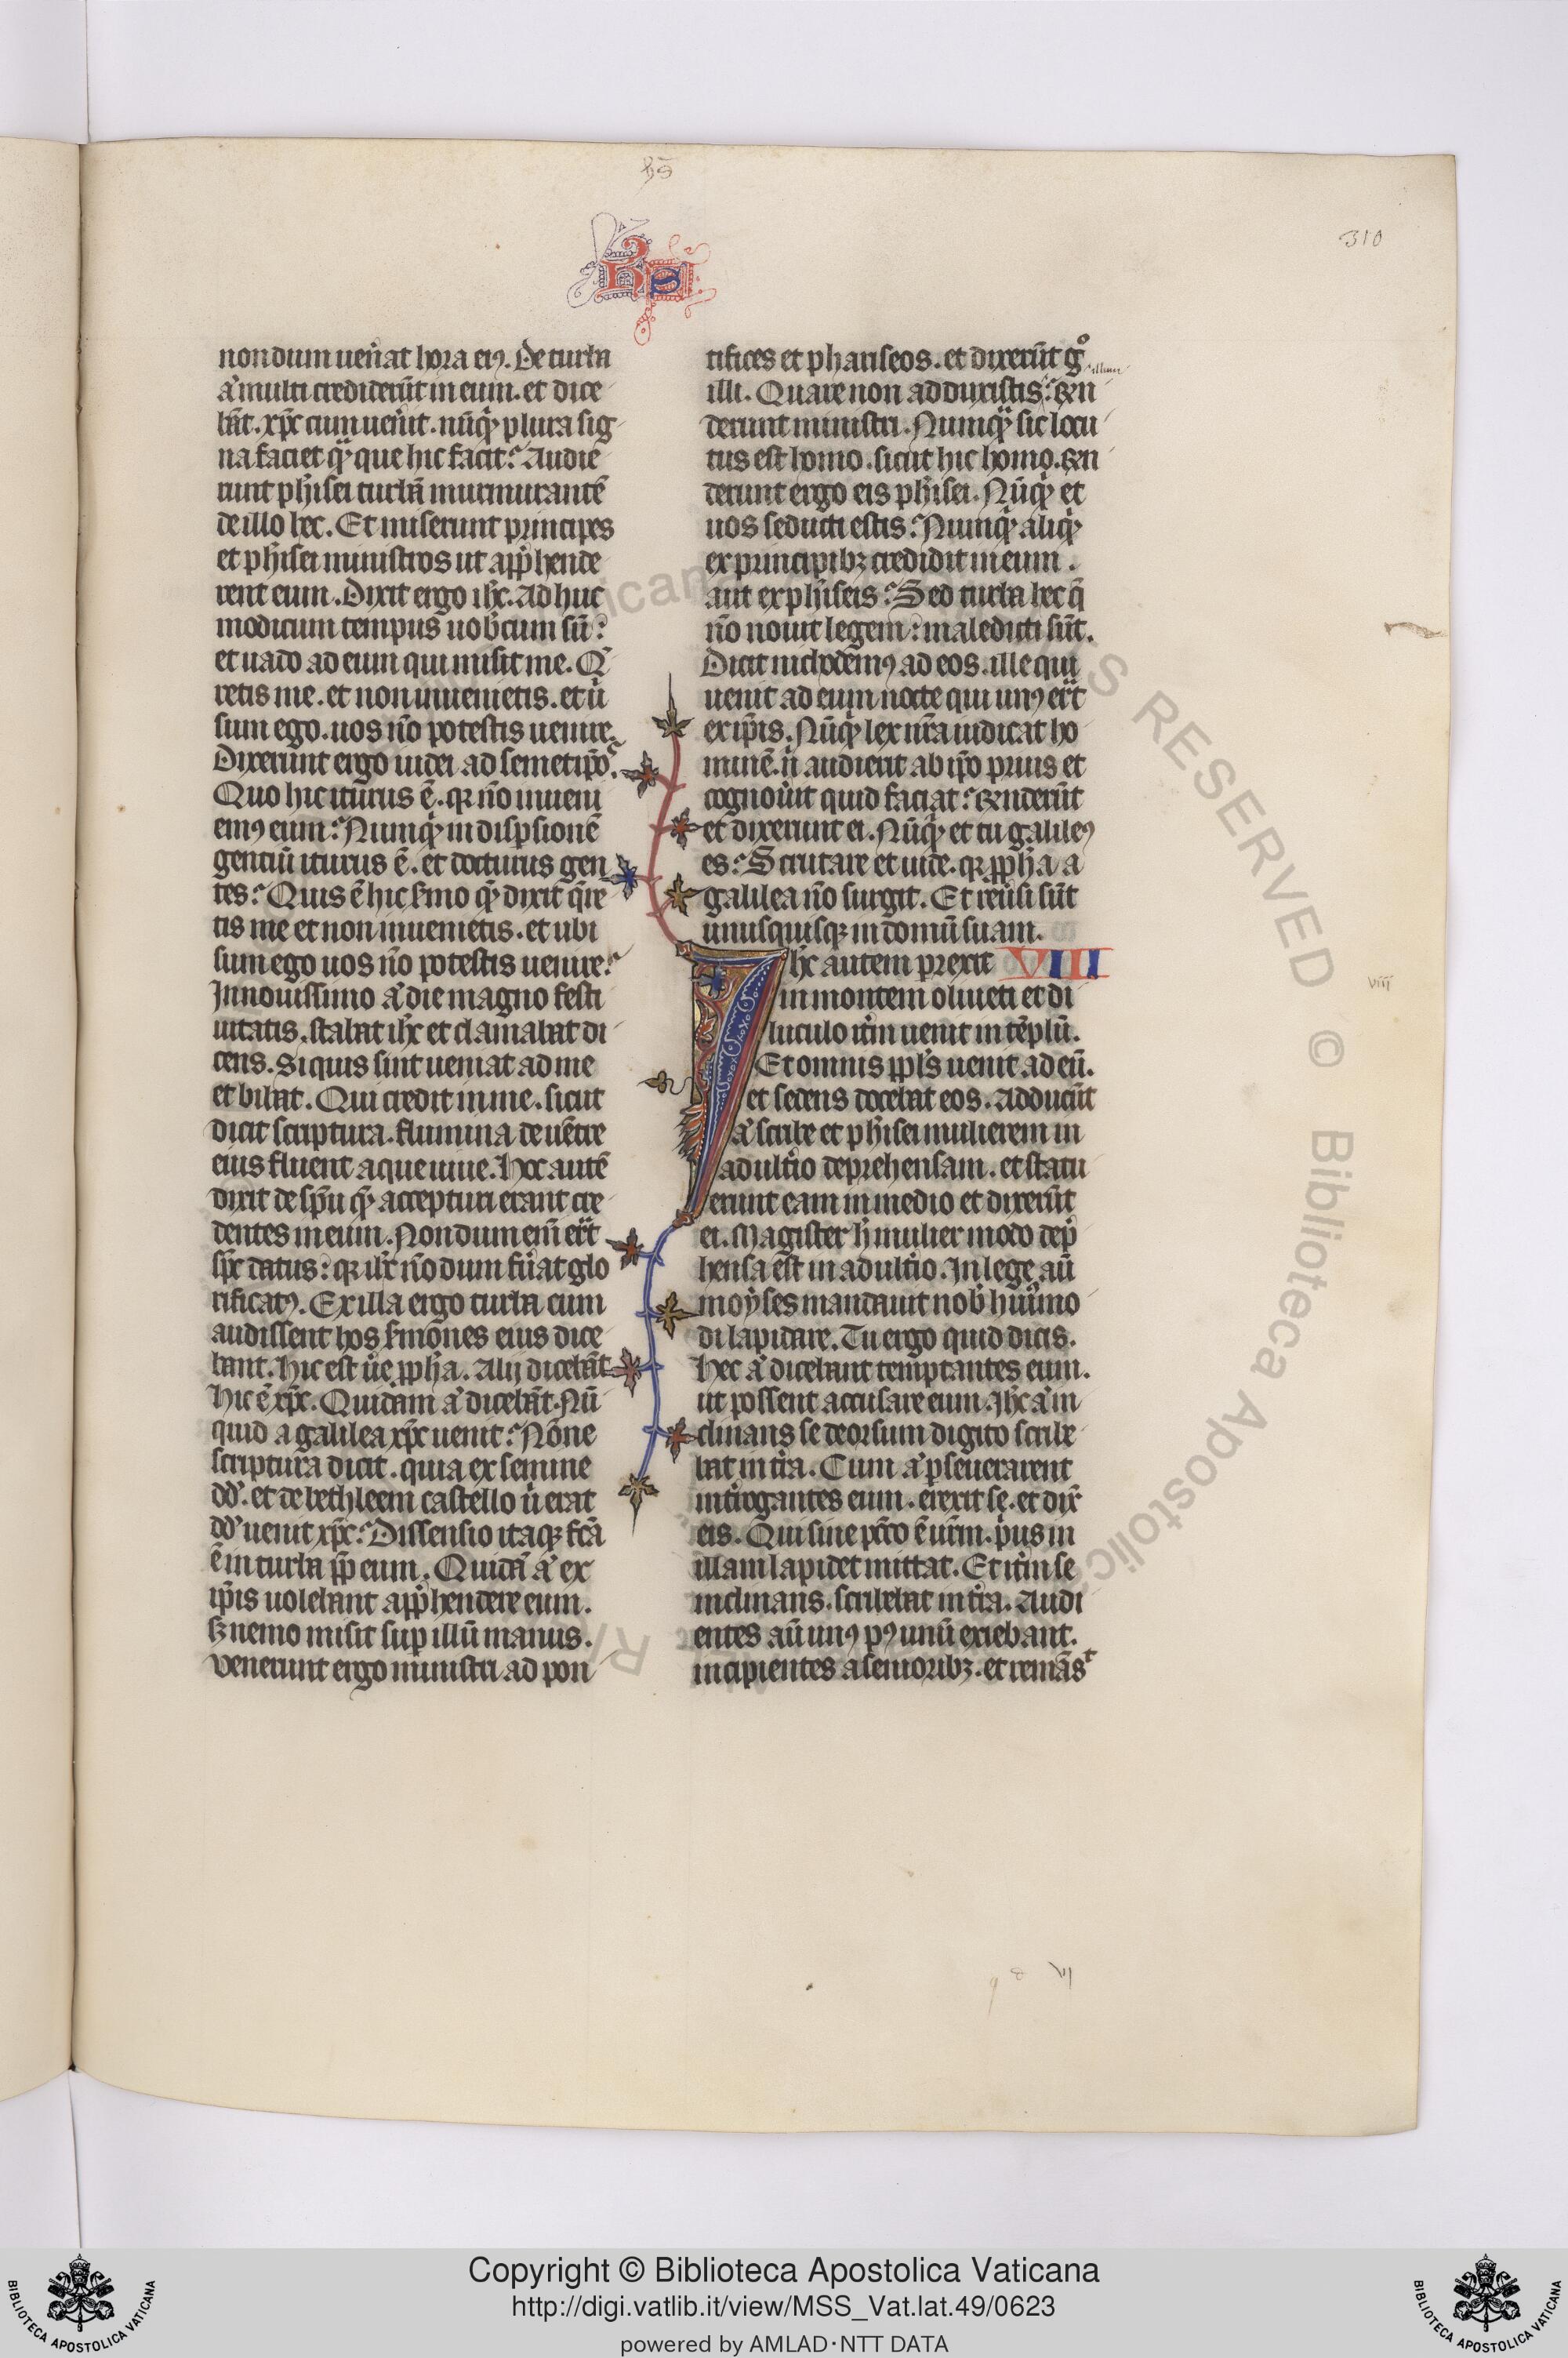 310
nondum uen̄at hora ei⁹. De turba
a͛ multi crediderūt in eum. et dice
bāt. xp̄c cum uen̄it. nūq̄ plura sig
na faciet qͣ que hic facit? Audie
runt ph̄isei turbā murmurantē
de illo hec. Et miserunt principes
et ph̄isei ministros ut app̄hende
rent eum. Dixit ergo ih̄c. Ad huc
modicum tempus uob̄cum sū:
et uado ad eum qui misit me. Q̄
retis me. et non inuenietis. et u͛
sum ego. uos nō potestis uenire.
Dixerunt ergo iudei ad semetip̄os.
Quo hic iturus ē. qr nō inueni
em⁹ eum? Numq̄ in disp̱sionē
gentiū iturus ē. et docturus gen
tes? Quis ē hic s̄mo qͤ dixit q̄re
tis me et non inuenietis. et ubi
sum ego uos nō potestis uenire?
In nouissimo a͛ die magno festi
uitatis. stabat ih̄c et clamabat di
cens. Si quis sitit ueniat ad me
et bibat. Qui credit in me. sicut
dicit scriptura. flumina de uētre
eius fluent aque uiue. Hoc autē
dixit de sp̄u qͤ accepturi erant cre
dentes in eum. Nondum eni͞ erͣt
sp̄c datus: qr ih̄c nōdum fu͛at glo
rificat⁹. Ex illa ergo turba cum
audissent hos s̄mōnes eius dice
bant. Hic est ue͛ pp̄ha. Alij dicebāt
hic ē xp̄c. Quidam a͛ dicebāt. Nū
quid a galilea xp̄c uenit? Nōne
scriptura dicit. quia ex semine
dd̄. et de bethleem castello u͛ erat
dd̄ uenit xp̄c? Dissensio itaqꝫ fc̄a
ē in turba pp̄ eum. Quidā a͛ ex
ip̄is uolebant app̄hendere eum.
sꝫ nemo misit sup̱ illū manus.
Venerunt ergo ministri ad pon
tifices et phariseos. et dixerūt gͦ
illi. Quare non adduxistis illum? Rn̄
derunt ministri. Numqͣ sic locu
tus est homo. sicut hic homo. Rn̄
derunt ergo eis ph̄isei. Nūq̄ et
uos seducti estis? Numq̄ aliq̄
ex principibꝫ credidit in eum.
aut ex ph̄iseis? Sed turba hec q̄
nō nouit legem: maledicti sūt.
Dicit nichodem⁹ ad eos. ille qui
uenit ad eum nocte qui un⁹ erͣt
ex ip̄is. Nūq̄ lex nr̄a iudicat ho
minē. n͛ audierit ab ip̄o prius et
cognou͛it quid faciat? Rn̄derūt
et dixerunt ei. Nūq̄ et tu galile⁹
es? Scrutare et uide. qr pp̄ha a
galilea nō surgit. Et reu͛si sūt
unusquisqꝫ in domū suam.
Ih̄c autem p̱rexit VIII
in montem oliueti et di
luculo it͛m uenit in tēplū.
Et omnis pp̄ls uenit ad eū.
et sedens docebat eos. Adducūt
a͛ scribe et ph̄isei mulierem in
adult͛io deprehensam. et statu
erunt eam in medio et dixerūt
ei. Magister h̄ mulier modo dep̄
hensa est in adult͛io. In lege aū
moyses mandauit nob̄ huiͥmo
di lapidare. Tu ergo quid dicis.
Hec a͛ dicebant temptantes eum.
ut possent accusare eum. Ih̄c a͛ in
clinans se deorsum digito scribe
bat in t͛ra. Cum a͛ p̱seuerarent
int͛rogantes eum. erexit se. et dix͛
eis. Qui sine pc̄cō ē ur̄m. p͛us in
illam lapidet mittat. Et it͛m se
inclinans. scribebat in t͛ra. Audi
entes aū un⁹ p⁹ unū exiebant.
incipientes a senioribꝫ. et remāsͭ
viii
Copyright © Biblioteca Apostolica Vaticana
http://digi.vatlib.it/view/MSS_Vat.lat.49/0623
powered by AMLAD·NTT DATA